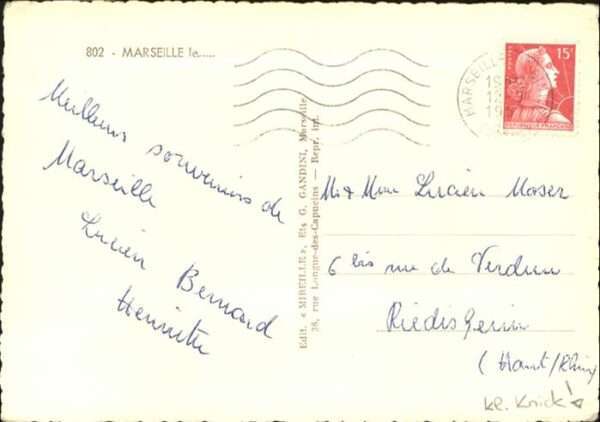 802 - MARSEILLE le......
Meilleurs souvenirs de
Marseille
Lucien Bernard
Henriette
Edit. « MIREILLE », Ets G. GANDINI, Marseille
38, rue Longue-des-Capucins — Repr. int.
MARSEILLE
15F
Mr & Mme Lucien Moser
6 bis rue de Verdun
Riedisheim
(Haut/Rhin)
kl. Knick!